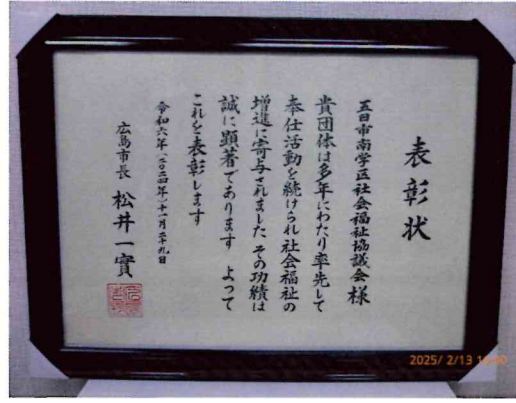 表彰状
五日市南学区社会福祉協議会 様
貴団体は多年にわたり率先して
奉仕活動を続けられ社会福祉の
増進に寄与されました その功績は
誠に顕著であります よって
これを表彰します
令和六年(二〇二四年)十一月二十九日
広島市長 松井一實
2025/ 2/13